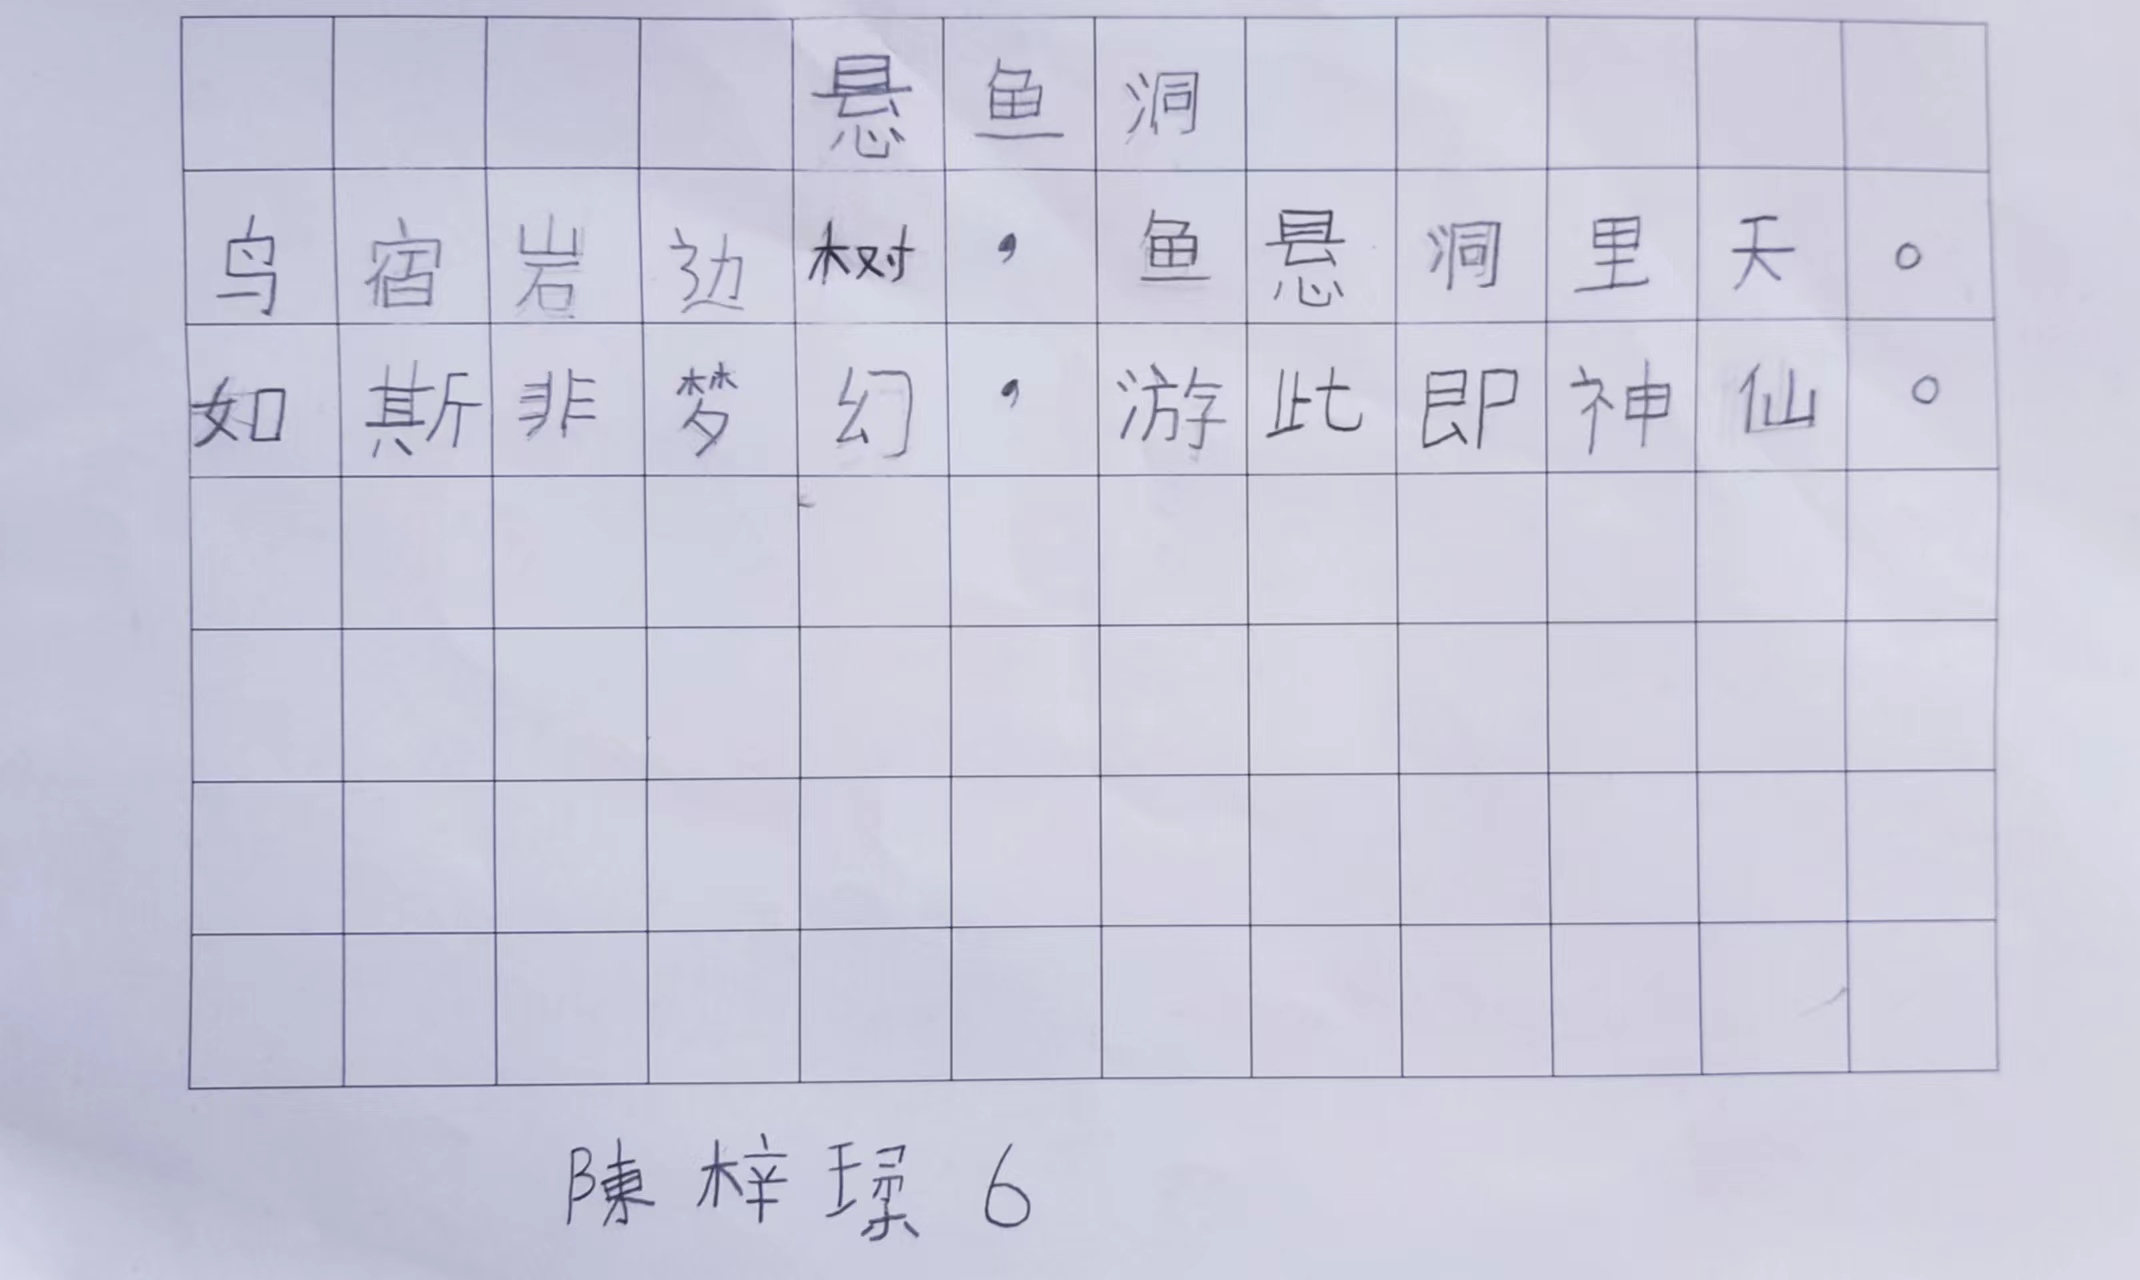 悬鱼洞
鸟宿岩边树，鱼悬洞里天。
如斯非梦幻，游此即神仙。
陳梓瑈 6